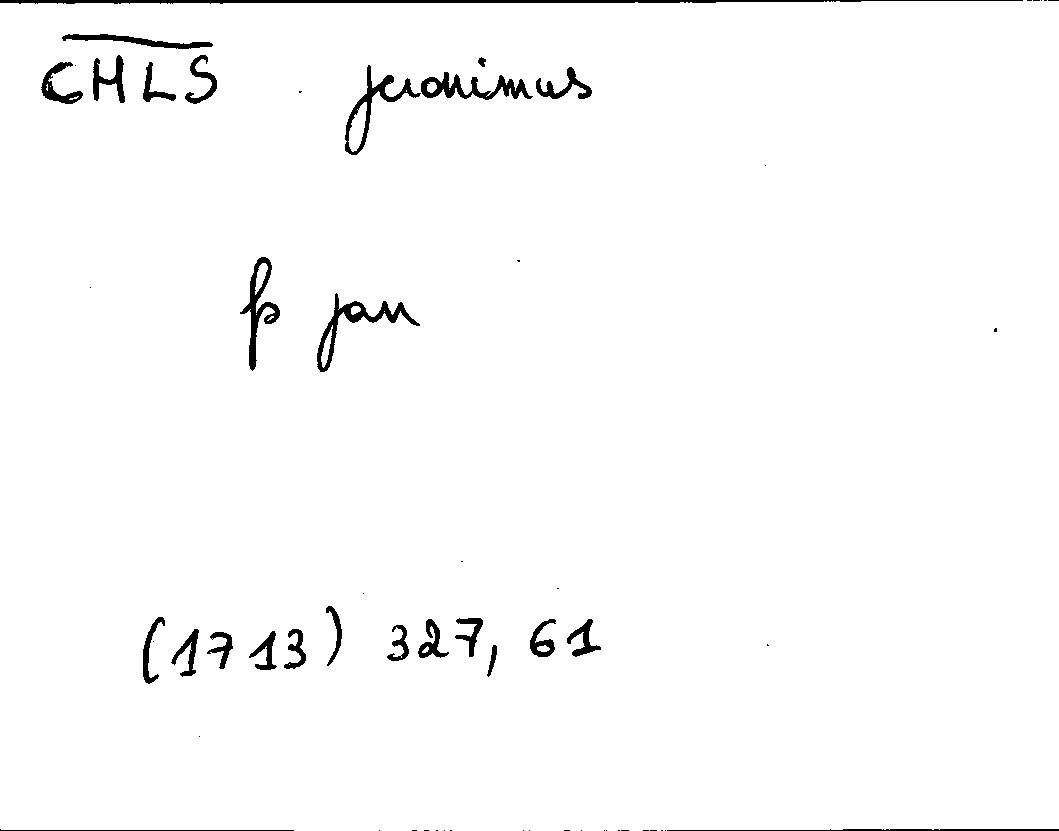 CHLS Jeronimus
fs Jan
(1713) 327, 61